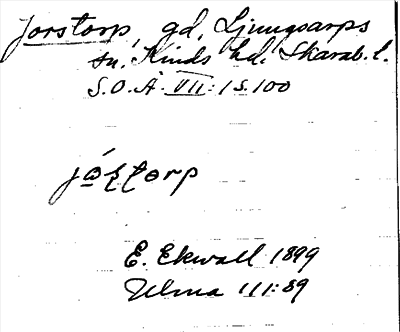 Jorstorp, gd, Ljungsarps
sn. Kinds hd. Skarab. l.
S.O.Ä. VII:1 S. 100
E. Ekwall 1899
Ulma 111:89